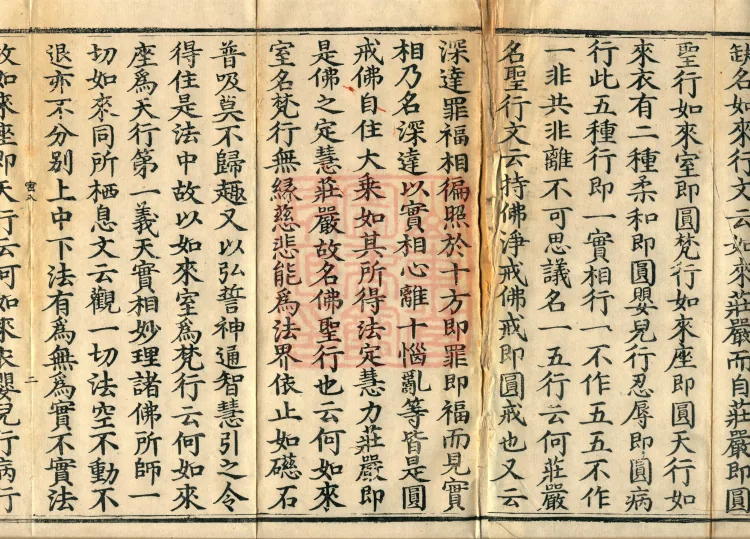 缺名如來行文云如來莊嚴而自莊嚴即圓
聖行如來室即圓梵行如來座即圓天行如
來衣有二種柔和即圓嬰兒行忍辱即圓病
行此五種行即一實相行一不作五五不作
一非共非離不可思議名一五行云何莊嚴
名聖行文云持佛淨戒佛戒即圓戒也又云
深達罪福相徧照於十方即罪即福而見實
相乃名深達以實相心離十惱亂等皆是圓
戒佛自住大乘如其所得法定慧力莊嚴即
是佛之定慧莊嚴故名佛聖行也云何如來
室名梵行無緣慈悲能爲法界依止如礠石
普吸莫不歸趣又以弘誓神通智慧引之令
得住是法中故以如來室爲梵行云何如來
座爲天行第一義天實相妙理諸佛所師一
切如來同所栖息文云觀一切法空不動不
退亦不分別上中下法有爲無爲實不實法
二
故如來座即天行云何如來衣嬰兒行病行